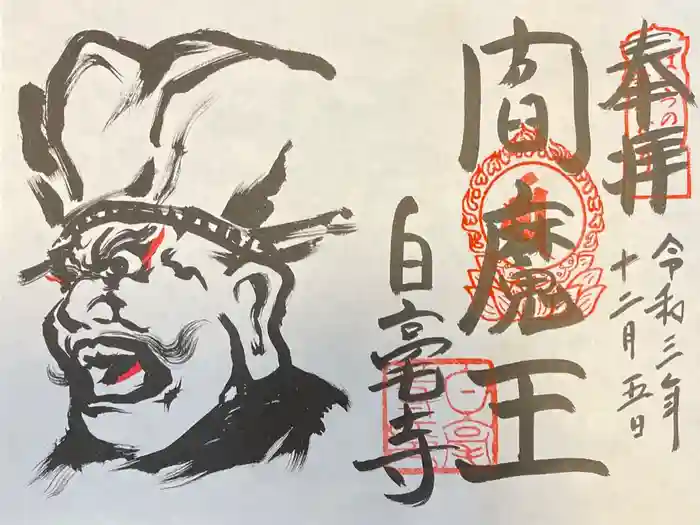 奉拝
令和三年
十二月五日
閻魔王
白毫寺